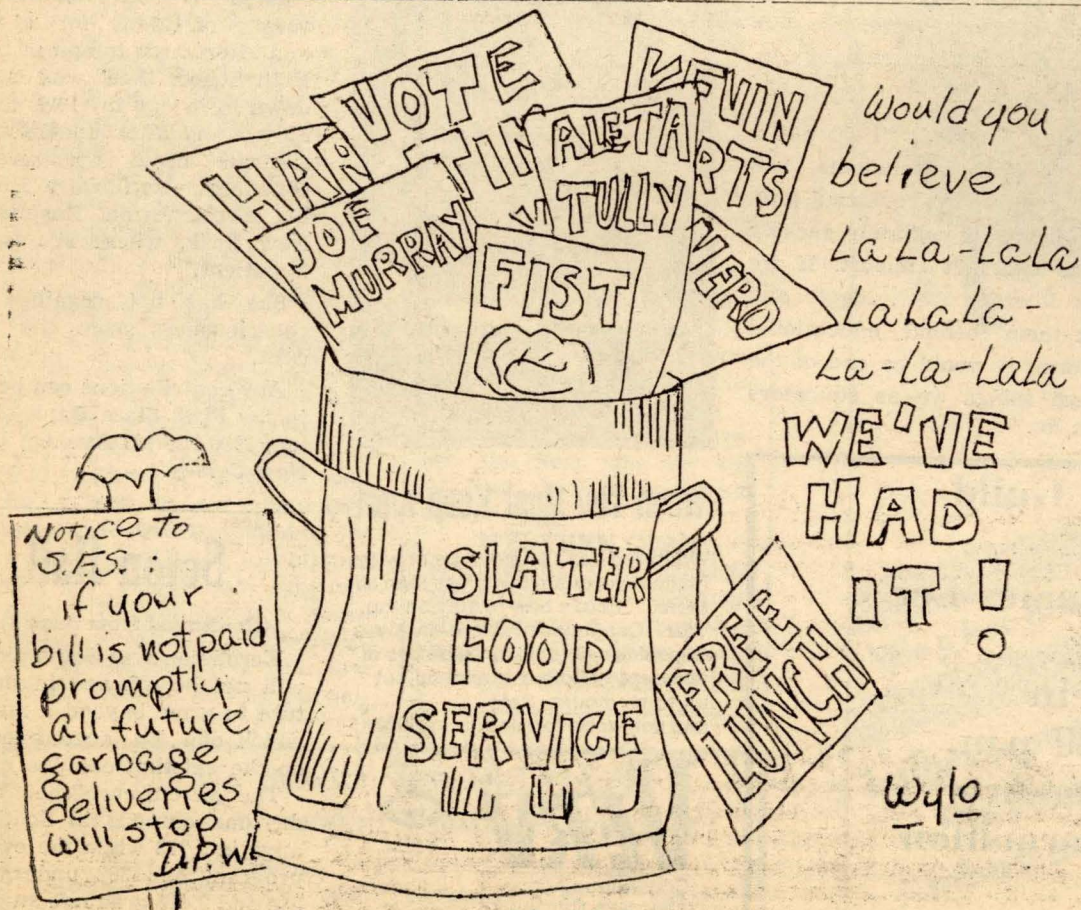 VOTE
TIM
HAR
JOE
MURRAY
ALETA
TULLY
KEVIN
RTS
FIST
VERO
would you
believe
La La-LaLa
LaLaLa-
La-La-Lala
WE'VE
HAD
IT!
NOTICE TO
S.F.S.:
if your
bill is not paid
promptly
all future
garbage
deliveries
will stop
D.P.W.
SLATER
FOOD
SERVICE
FREE
LUNCH
Wylo